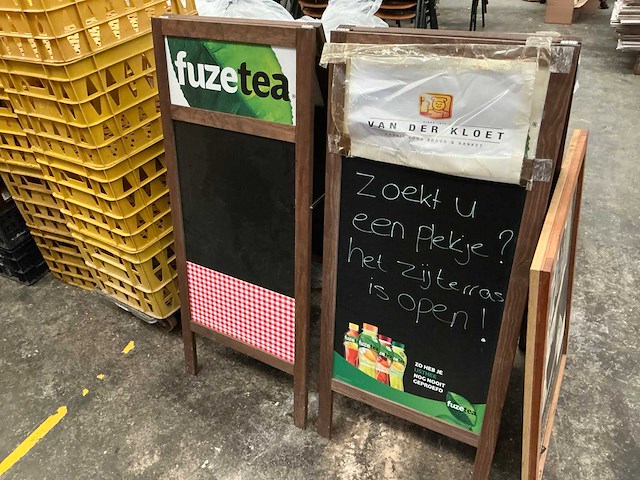 fuzetea
VAN DER KLOET
Zoekt u
een plekje?
het zijterras
is open!
ZO HEB JE
IJSTHEE
NOG NOOIT
GEPROEFD
fuzetea